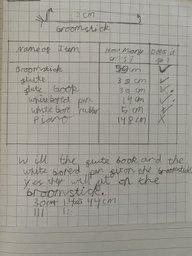 ? cm
broomstick
Name of Item How many cm's? Does it fit?
Broomstick 99 m ✓
glute 30 cm ✓
glute book 30 cm ✓
white bored pen 14 cm ✓
white bord rubber 5 cm ✓
Piano 148 cm X
Will the glute book and the
white bored pen fit on the broomstick
yes they will fit on the
broomstick.
30cm 14cm 44cm